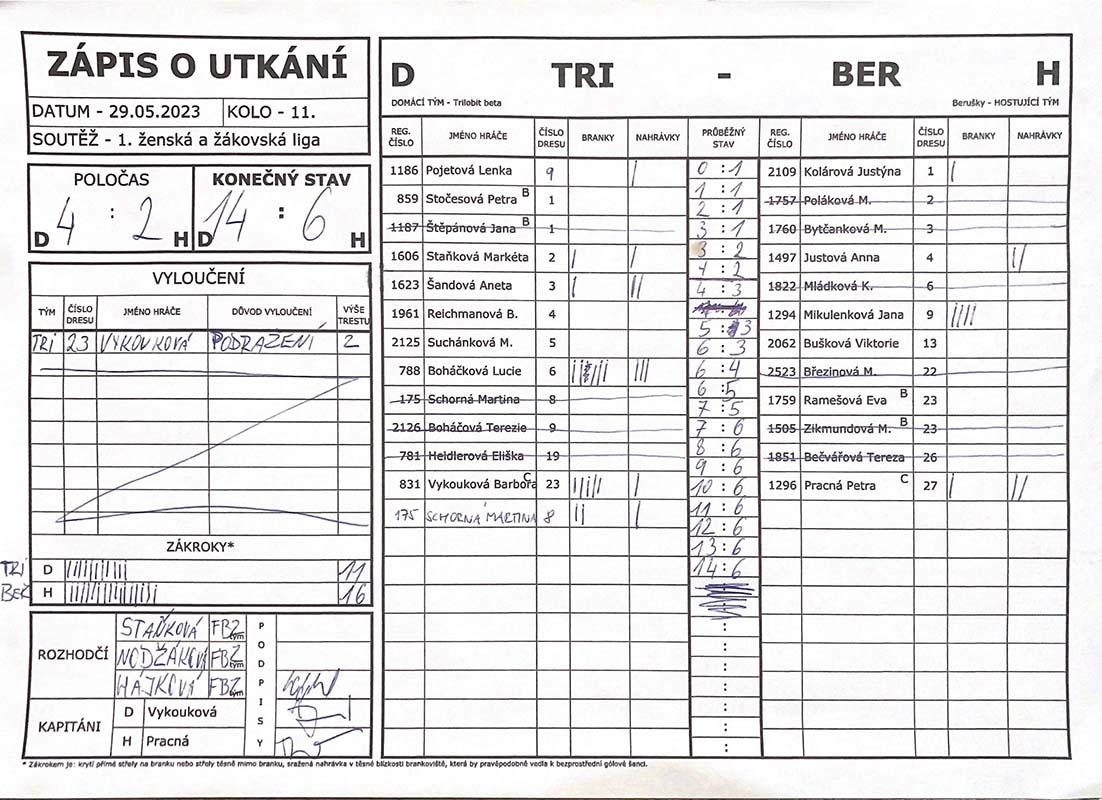 ZÁPIS O UTKÁNÍ
DATUM - 29.05.2023 KOLO - 11.
SOUTĚŽ - 1. ženská a žákovská liga
POLOČAS KONEČNÝ STAV
D 4 : 2 H D 14 : 6 H
VYLOUČENÍ
TÝM ČÍSLO DRESU JMÉNO HRÁČE DŮVOD VYLOUČENÍ VÝŠE TRESTU
TRI 23 VYKOUKOVÁ PODRAŽENÍ 2
ZÁKROKY*
TRI D 11
BER H 16
ROZHODČÍ
STAŇKOVÁ FBZ tým
NODŽÁKOVÁ FBZ tým
HÁJKOVÁ FBZ tým
PODPISY
KAPITÁNI
D Vykouková
H Pracná
D TRI - BER H
DOMÁCÍ TÝM - Trilobit beta Berušky - HOSTUJÍCÍ TÝM
REG. ČÍSLO JMÉNO HRÁČE ČÍSLO DRESU BRANKY NAHRÁVKY PRŮBĚŽNÝ STAV REG. ČÍSLO JMÉNO HRÁČE ČÍSLO DRESU BRANKY NAHRÁVKY
1186 Pojetová Lenka 9 | 0 : 1 2109 Kolárová Justýna 1 |
1 : 1
859 Stočesová Petra B 1 2 : 1 1757 Poláková M. 2
1187 Štěpánová Jana B 1 3 : 1 1760 Bytčanková M. 3
1606 Staňková Markéta 2 | | 3 : 2 1497 Justová Anna 4 ||
4 : 2
1623 Šandová Aneta 3 | || 4 : 3 1822 Mládková K. 6
1961 Reichmanová B. 4 5 : 3 1294 Mikulenková Jana 9 ||||
2125 Suchánková M. 5 6 : 3 2062 Bušková Viktorie 13
788 Boháčková Lucie 6 ||| 6 : 4 2523 Březinová M. 22
6 : 5
175 Schorná Martina 8 7 : 5 1759 Ramešová Eva B 23
2126 Boháčová Terezie 9 7 : 6 1505 Zikmundová M. B 23
8 : 6
781 Heidlerová Eliška 19 9 : 6 1851 Bečvářová Tereza 26
831 Vykouková Barbora C 23 | 10 : 6 1296 Pracná Petra C 27 | ||
175 SCHORNÁ MARTINA 8 || | 11 : 6
12 : 6
13 : 6
14 : 6
* Zákrokem je: krytí přímé střely na branku nebo střely těsně mimo branku, sražená nahrávka v těsné blízkosti brankoviště, která by pravěpodobně vedla k bezprostřední gólové šanci.